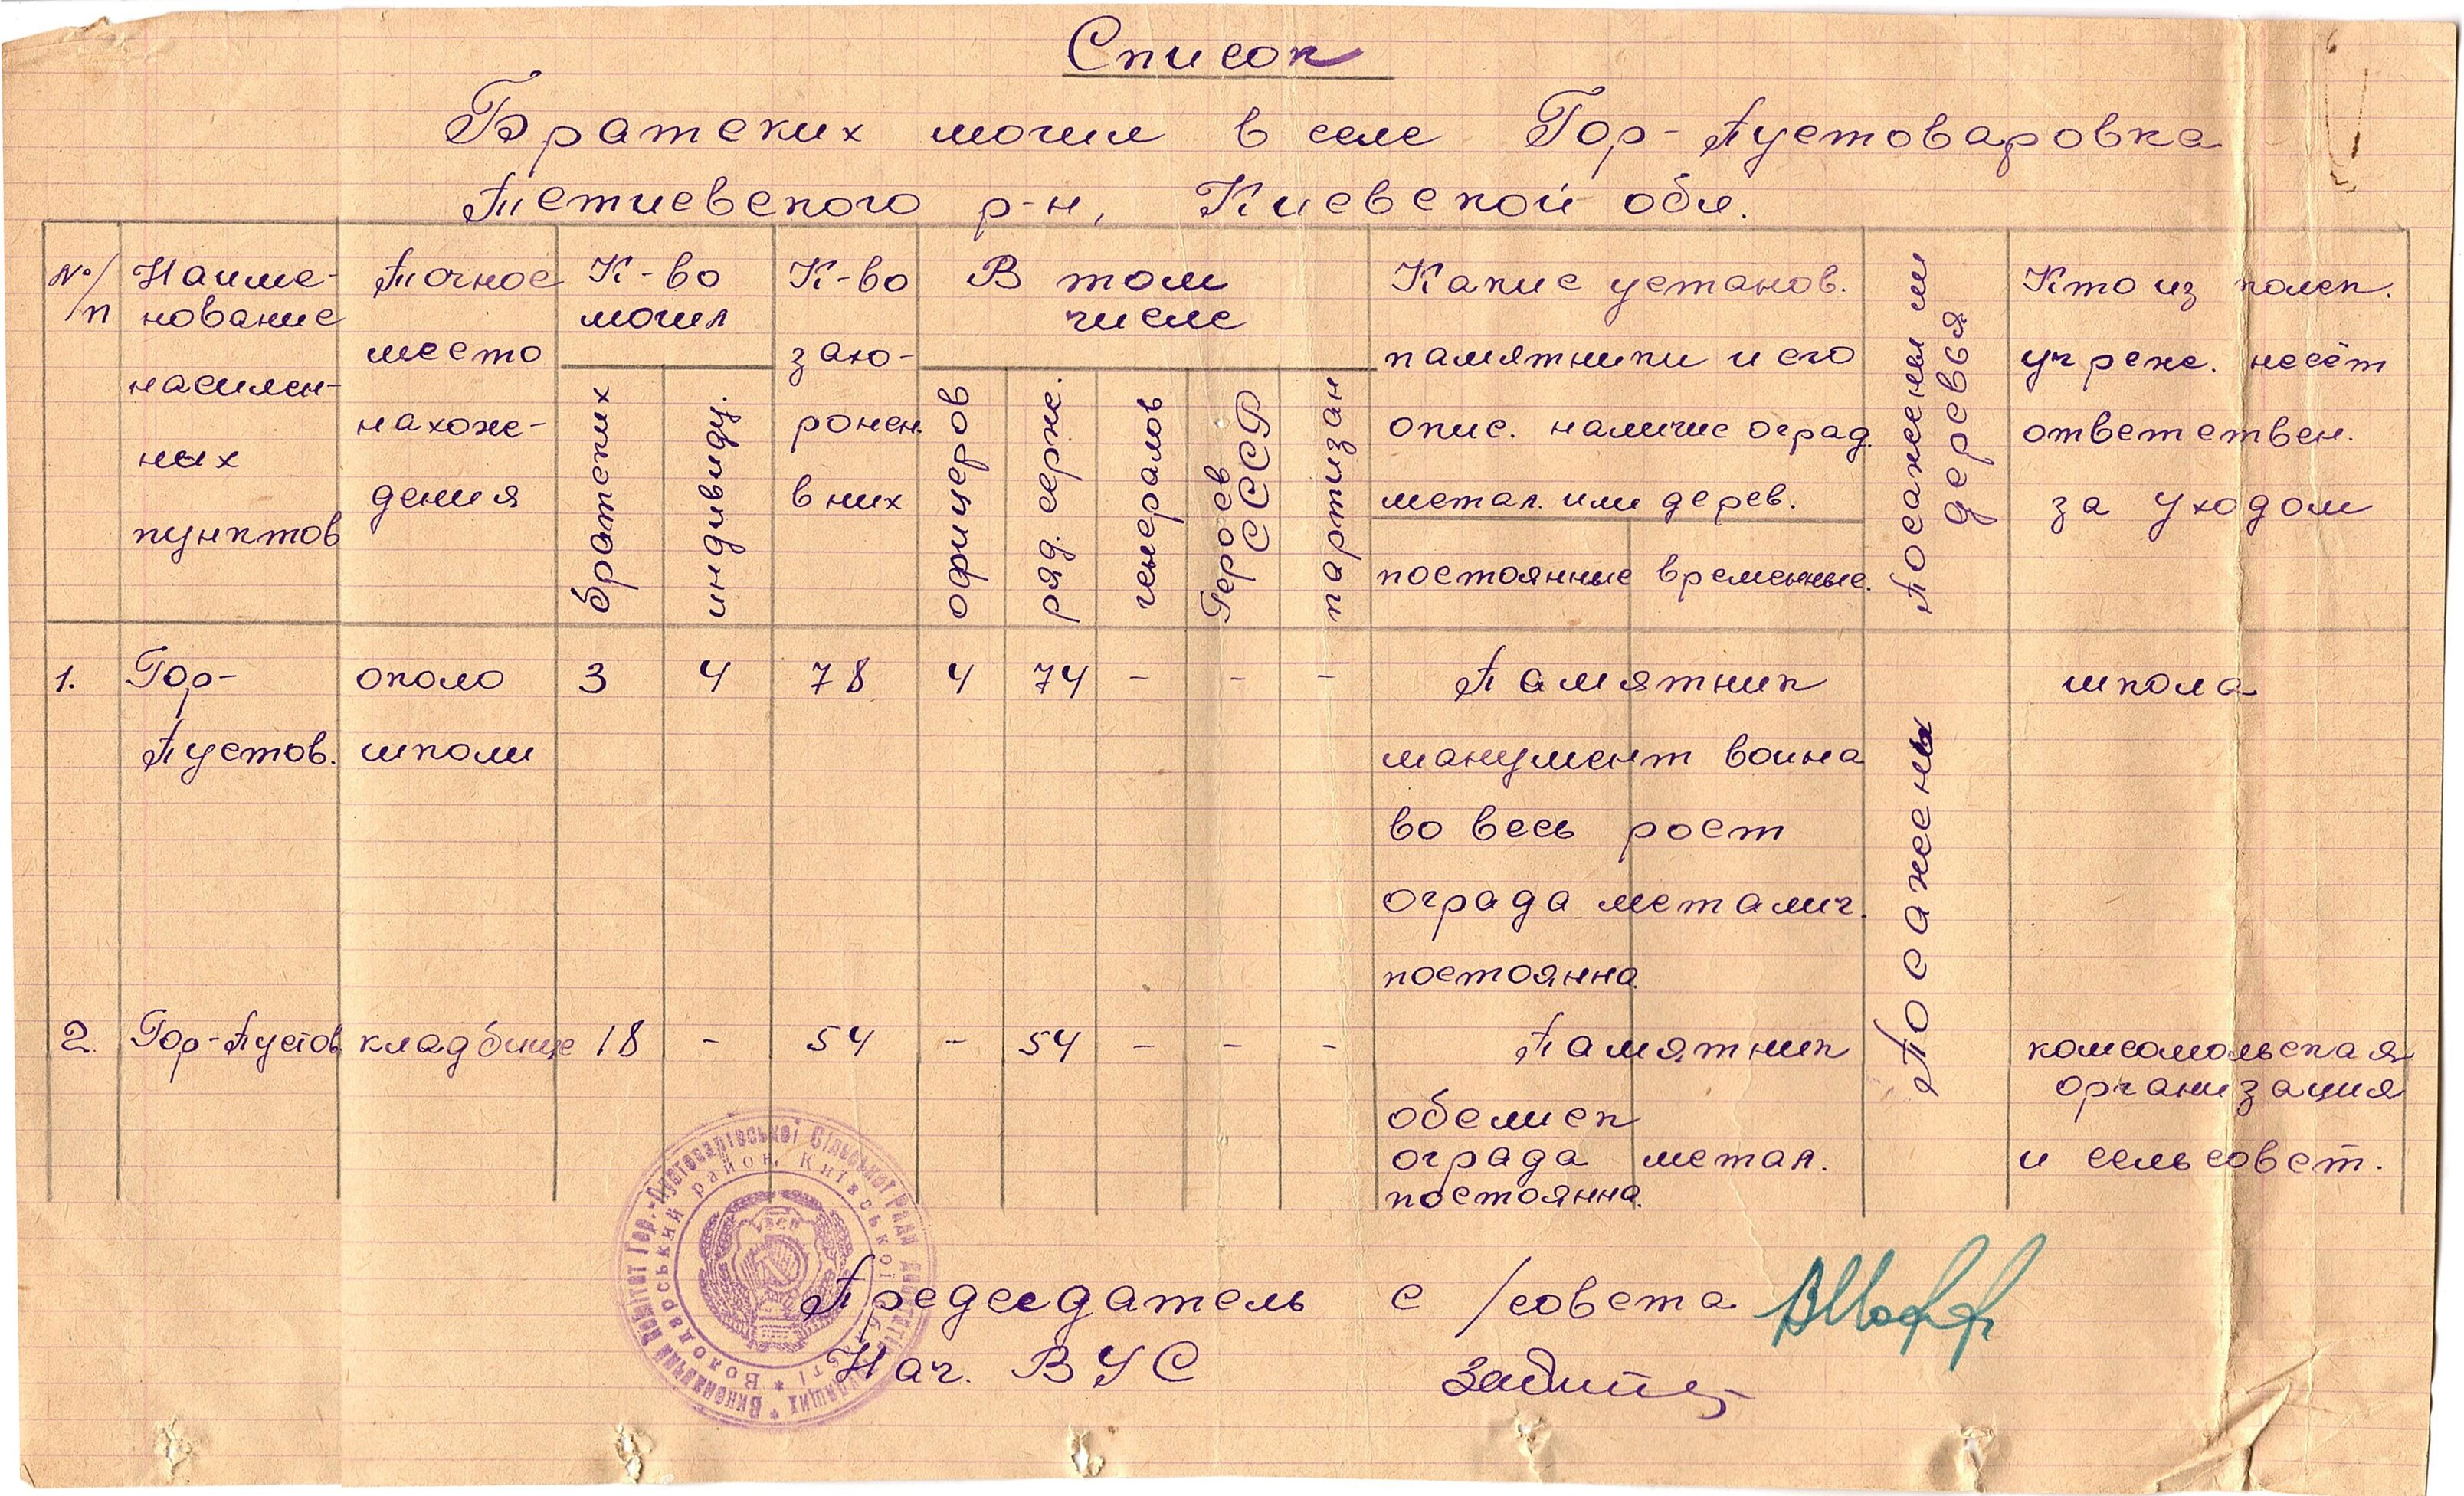 Список
Братских могил в селе Гор-Пустоваровка
Тетиевского р-н, Киевской обл.
№/п
Наиме-
нование
населен-
ных
пунктов
Точное
место
нахоже-
дения
К-во
могил
братских
индивиду.
К-во
захо-
ронен.
в них
В том
числе
офицеров
ряд. серж.
генералов
Героев
СССР
партизан
Какие установ.
памятники и его
опис. наличие оград.
метал. или дерев.
постоянные временные.
Посажены ли
деревья
Кто из колск.
учреж. несёт
ответствен.
за уходом
1. Гор- около 3 4 78 4 74 - - - Памятник школа
Пустов. школи манумент воина
во весь рост
ограда металич.
постоянна.
Посажены
2. Гор-Пустов кладбище 18 - 54 - 54 - - - Памятник комсомольская
организация
обелиск
ограда метал. и сельсовет.
постоянна.
Председатель с/совета
Нач. ВУС
Виконавчий комітет Гор.-Пустоварівської Сільської Ради депутатів трудящих
Володарський район, Київської області